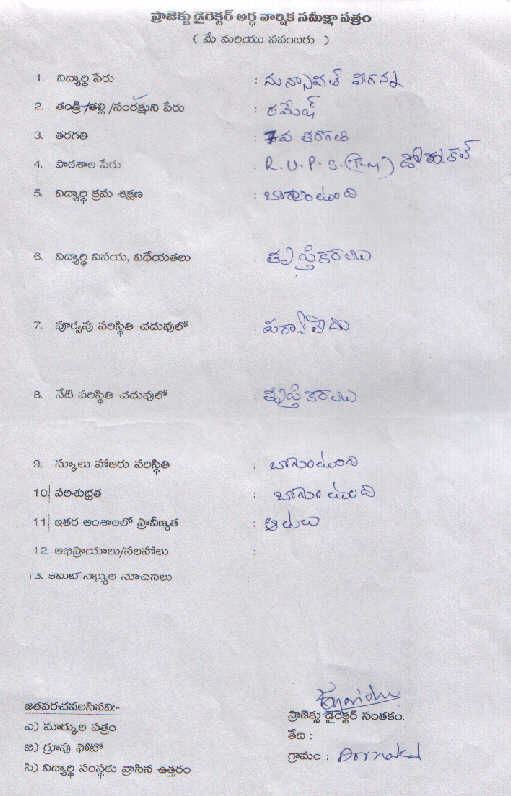 ప్రాజెక్టు డైరెక్టర్ అర్ధ వార్షిక సమీక్షా పత్రం
( మే మరియు నవంబరు )
1. విద్యార్థి పేరు :
2. తండ్రి/తల్లి/సంరక్షకుని పేరు : రమేష్
3. తరగతి : 7వ తరగతి
4. పాఠశాల పేరు : R.U.P.S.
5. విద్యార్థి క్రమ శిక్షణ : బాగుంటుంది
6. విద్యార్థి వినయ, విధేయతలు :
7. పూర్వపు పరిస్థితి చదువులో : పర్వాలేదు
8. నేటి పరిస్థితి చదువులో :
9. స్కూలు హాజరు పరిస్థితి : బాగుంటుంది
10 పరిశుభ్రత : బాగుంటుంది
11 ఇతర అంశాలలో ప్రావీణ్యత : ఆటలు
12. అభిప్రాయాలు/సలహాలు :
13. కమిటీ సభ్యుల సూచనలు
జతపరచవలసినవి:-
ఎ) మార్కుల పత్రం
బి) గ్రూపు ఫోటో
సి) విద్యార్థి సంస్థకు వ్రాసిన ఉత్తరం
ప్రాజెక్టు డైరెక్టర్ సంతకం.
తేది :
గ్రామం : Dornakal